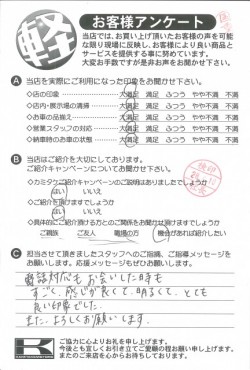 軽
お客様アンケート
当店では、お買い上げ頂いたお客様の声を可能
な限り現場に反映し、お客様により良い商品と
サービスを提供する事に努めています。
大変お手数ですが是非お声をお聞かせ下さい。
A 当店を実際にご利用になった印象をお聞かせ下さい。
◇店の印象 大満足 満足 ふつう やや不満 不満
◇店内・展示場の清掃 大満足 満足 ふつう やや不満 不満
◇お車の品揃え 大満足 満足 ふつう やや不満 不満
◇営業スタッフの対応 大満足 満足 ふつう やや不満 不満
◇納車時のお車の状態 大満足 満足 ふつう やや不満 不満
B 当店はご紹介を大切にしております。
ご紹介キャンペーンについてお聞かせ下さい
◇カミタケご紹介キャンペーンのご説明はありましたでしょうか
はい いいえ
◇ご紹介頂けますでしょうか
はい いいえ
◇具体的にご紹介頂ける方とのご関係をお聞かせ頂けますでしょうか
ご親族 ご友人 職場の方 機会があれば紹介したい
C 担当させて頂きましたスタッフへのご指摘、ご指導メッセージを
お願いします。応援メッセージもぜひお願いします。
電話対応もお会いした時も
すごく感じが良くて、明るくて、とても
良い印象でした。
また、よろしくお願いします。
K
ご協力に心よりお礼を申し上げます。
今後とも宜しくお引き立てご愛顧の程お願い申し上げます。
またのご来店を心からお待ちしております。